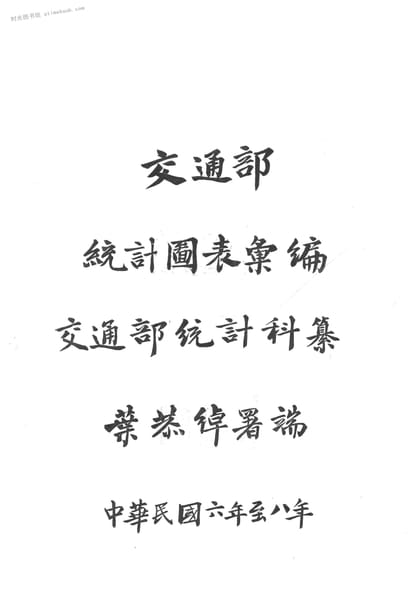 时光图书馆 stimebook.com
交通部
統計圖表彙編
交通部統計科纂
葉恭綽署端
中華民國六年至八年